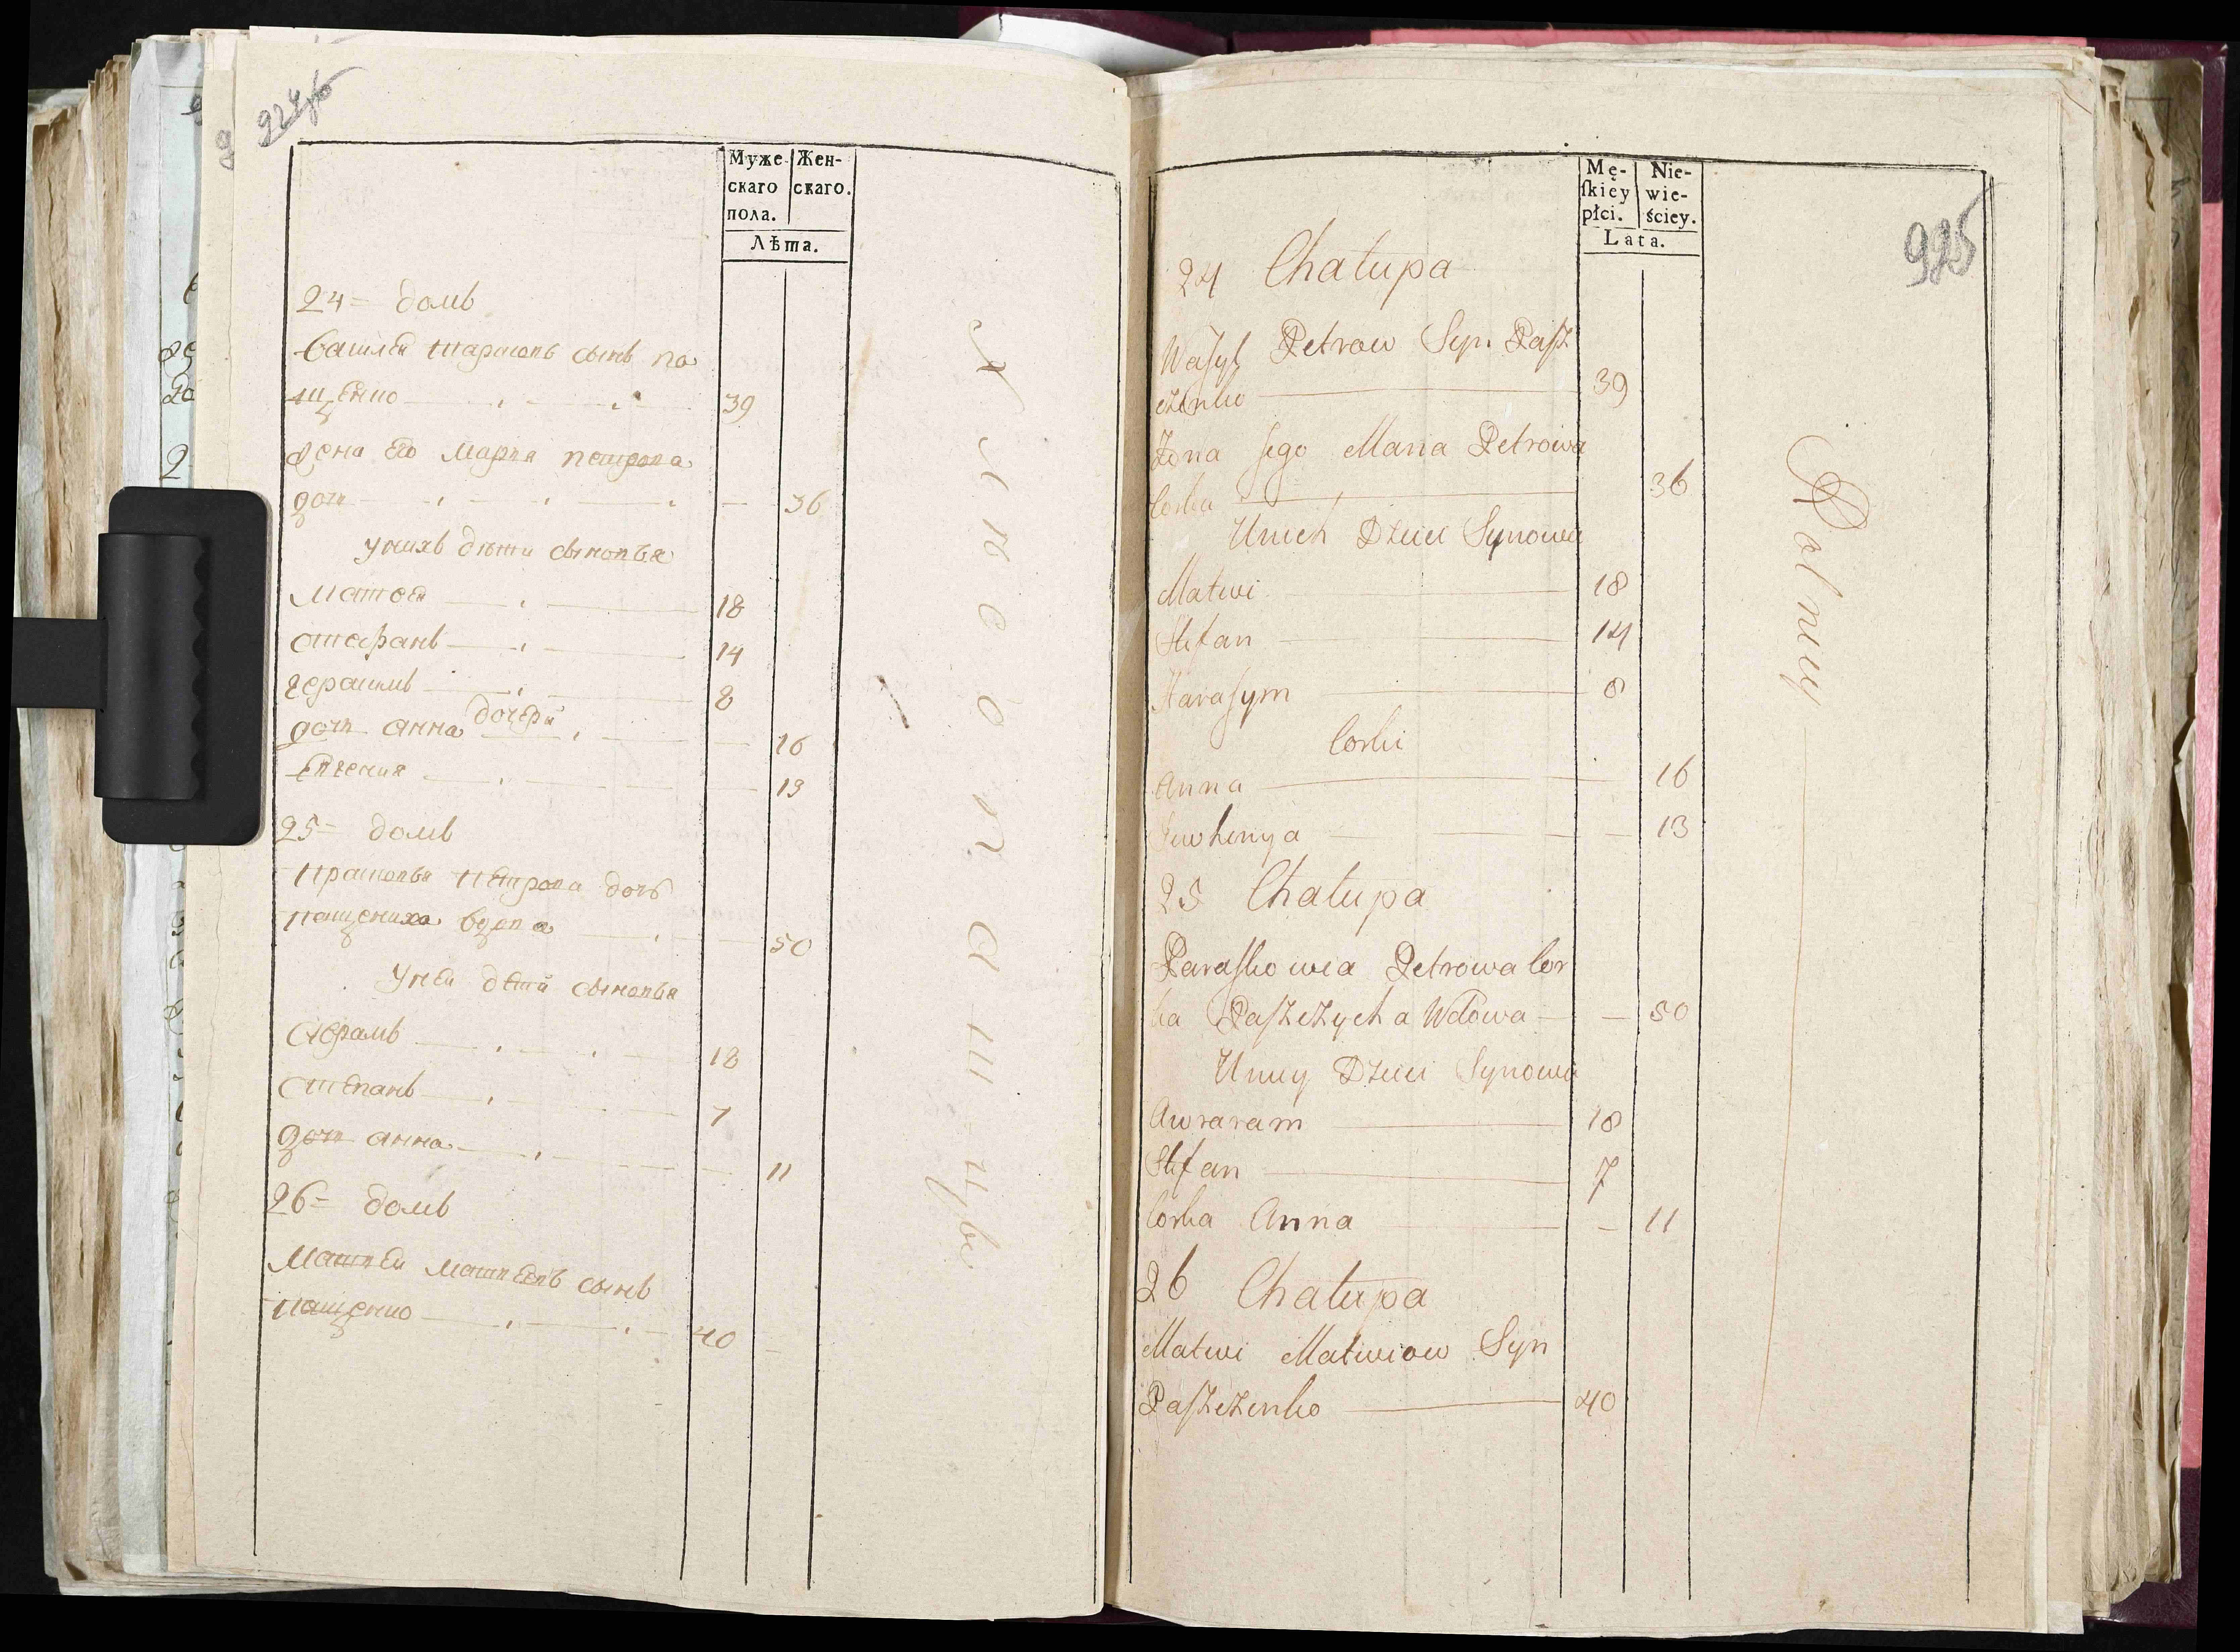 924об
Муже
скаго
пола.
Жен-
скаго.
Лѣта.
24 = домъ
сынъ па
щенко 39
жена его мария петрова
дочь 36
у нихъ дѣти сыновья
матвей 18
стефанъ 14
герасимъ 8
дочери
дочь анна 16
Евгения 13
25 = домъ
Прасковья Петрова дочь
пащениха вдова 50
у ней дети сыновья
18
степанъ 7
дочь анна 11
26 = домъ
Матвей матвеевъ сынъ
пащенко 40
925
Mę-
ſkiéy
płci.
Nie-
wie-
ściey.
Lata.
24 Chałupa
Waſyl Petrow Syn Paſz
czenko 39
Żona Jego Maria Petrowa
Corka 36
U nich Dzieci Synowie
Matwi 18
Stefan 14
Haraſym 8
Corki
Anna 16
Jewhenya 13
25 Chałupa
Paraſkowia Petrowa Cor
ka Paſzczycha Wdowa 50
U niey Dzieci Synowie
Awraram 18
Stefan 7
Corka Anna 11
26 Chałupa
Matwi Matwiow Syn
Paſzczenko 40
Rolnicy